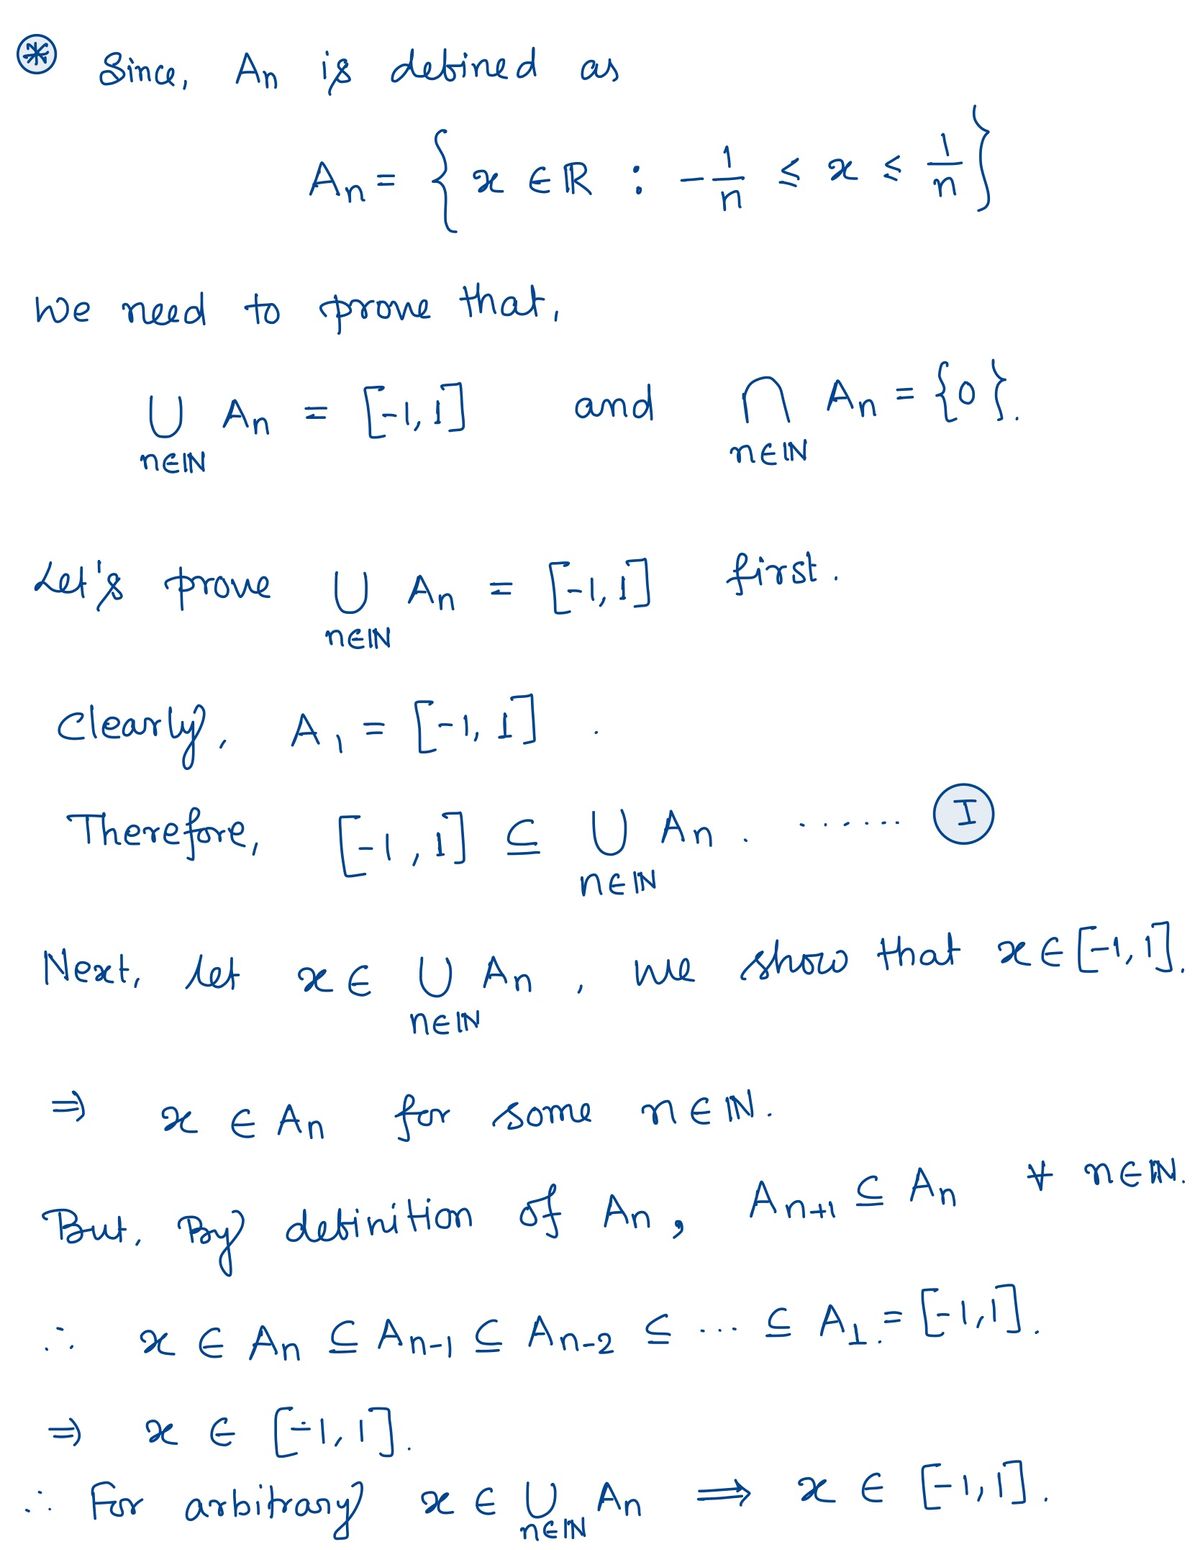 ⊛ Since, An is defined as
An = { x ∈ ℝ : -1/n ≤ x ≤ 1/n }
We need to prove that,
⋃ An = [-1, 1] and ⋂ An = {0}.
n∈ℕ n∈ℕ
Let's prove ⋃ An = [-1, 1] first.
n∈ℕ
Clearly, A1 = [-1, 1] .
Therefore, [-1, 1] ⊆ ⋃ An . ...... Ⓘ
n∈ℕ
Next, let x ∈ ⋃ An , we show that x ∈ [-1, 1].
n∈ℕ
⇒ x ∈ An for some n ∈ ℕ.
But, By definition of An, An+1 ⊆ An ∀ n∈ℕ.
∴ x ∈ An ⊆ An-1 ⊆ An-2 ⊆ ... ⊆ A1 = [-1, 1].
⇒ x ∈ [-1, 1].
∴ For arbitrary x ∈ ⋃ An ⟹ x ∈ [-1, 1].
n∈ℕ